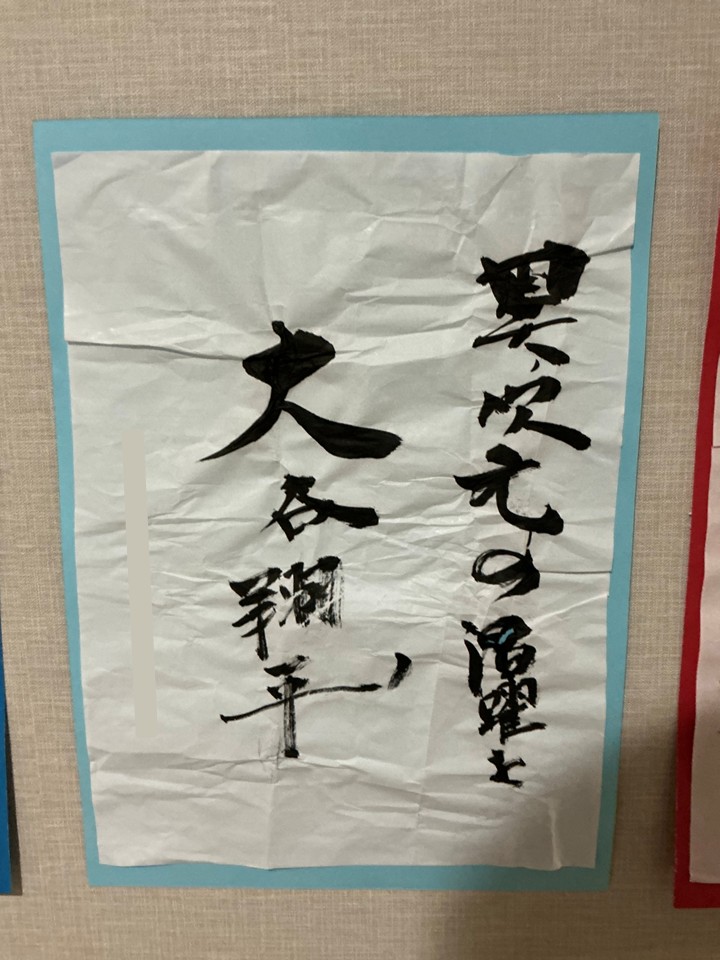 異次元の活躍と
大谷翔平